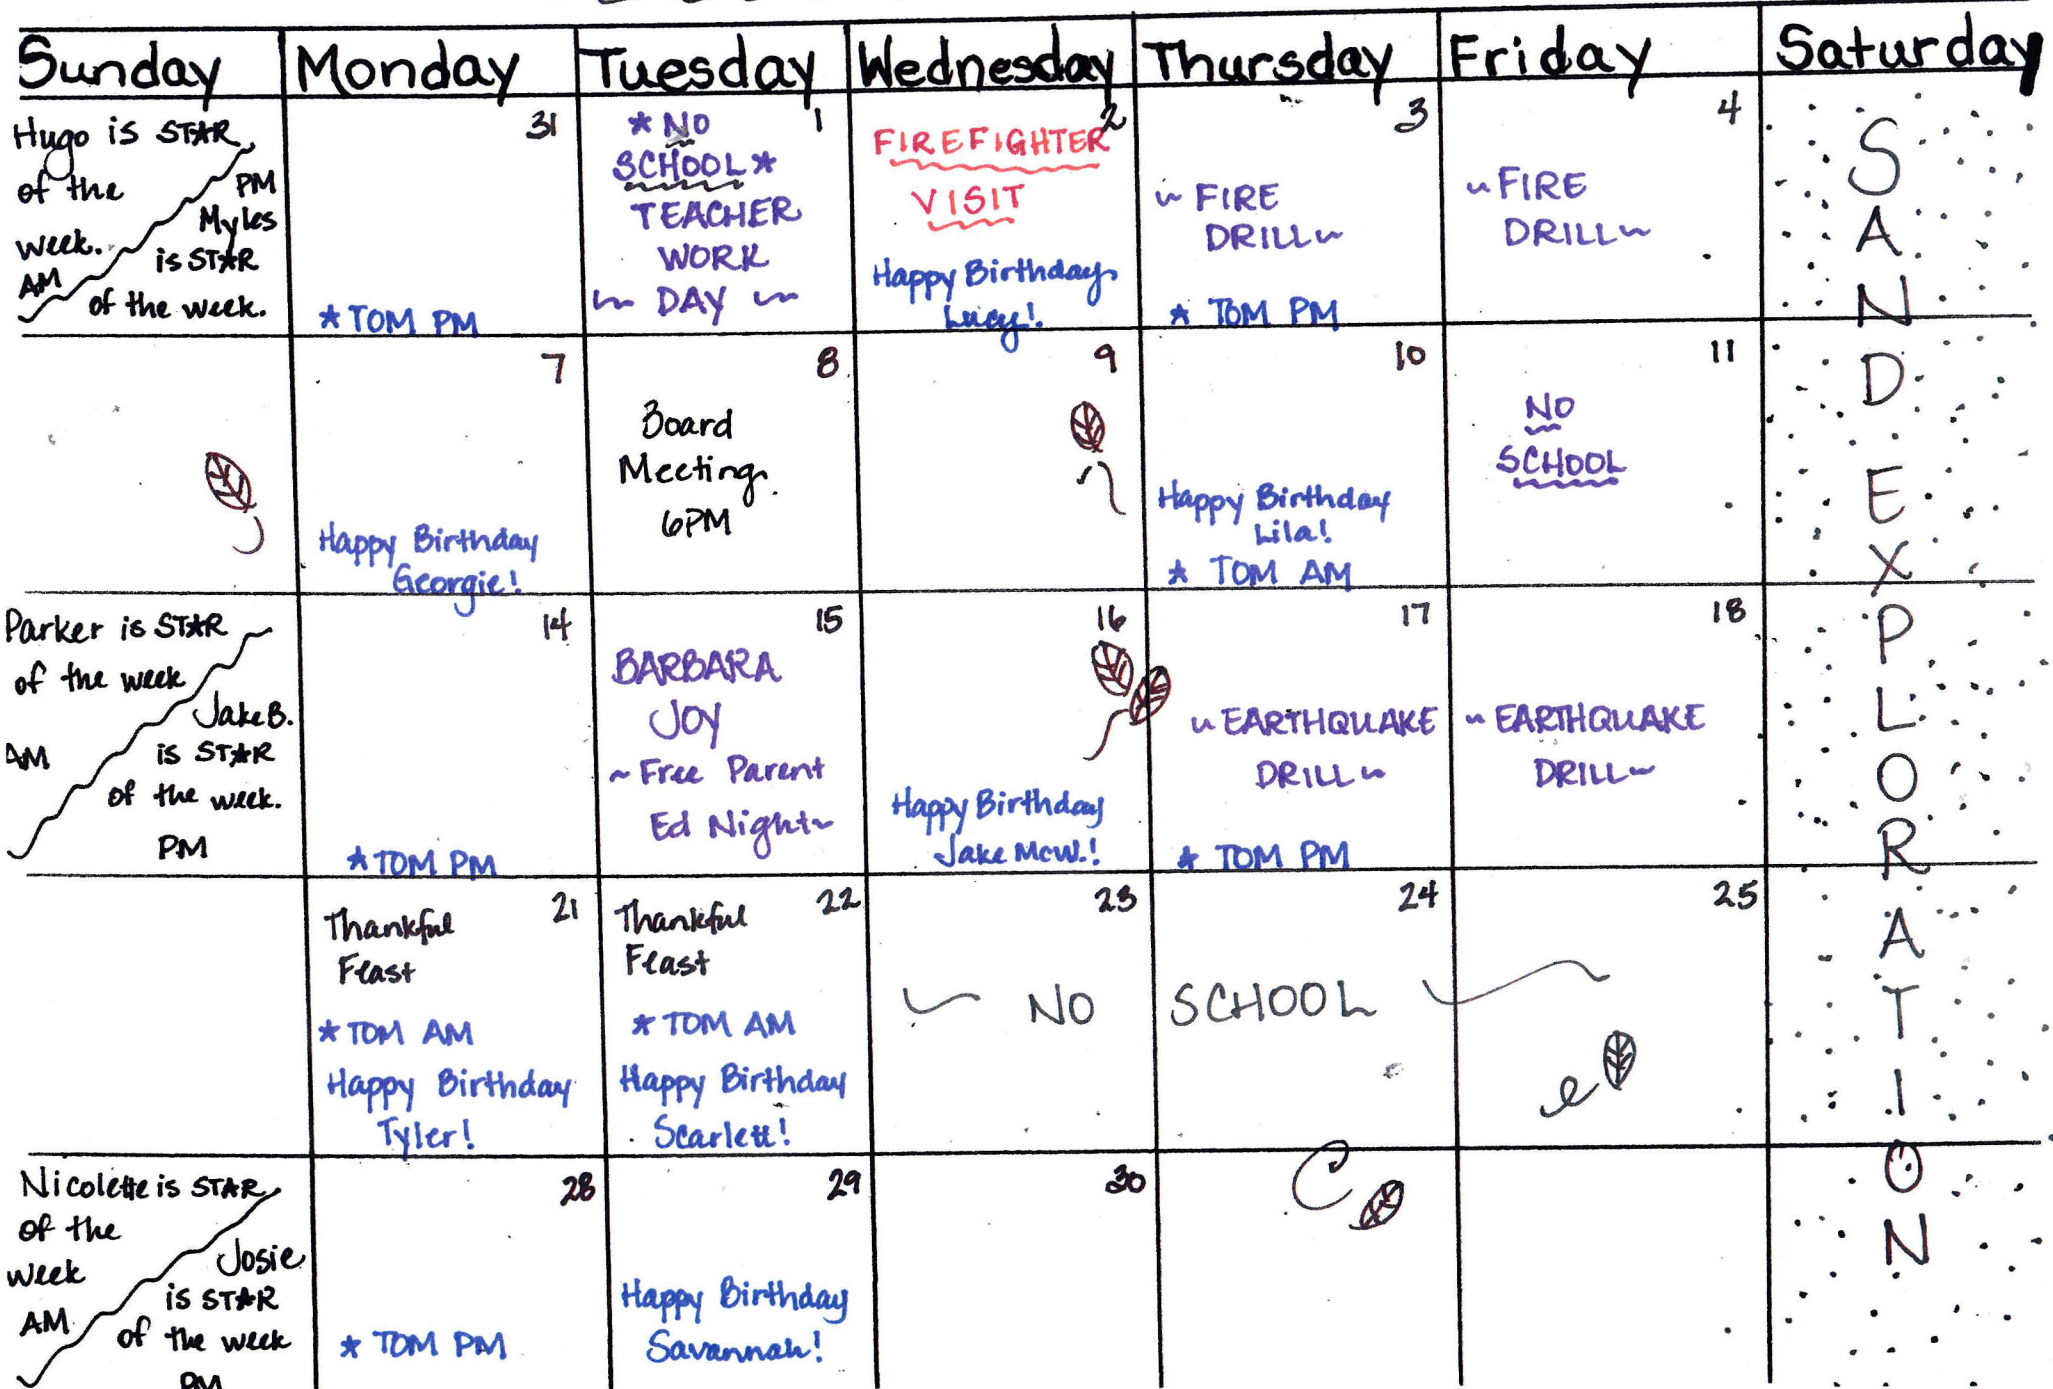 Sunday Monday Tuesday Wednesday Thursday Friday Saturday
Hugo is STAR
of the
week.
AM
PM
Myles
is STAR
of the week.
31
* TOM PM
1
* NO
SCHOOL *
TEACHER
WORK
~ DAY ~
2
FIREFIGHTER
VISIT
Happy Birthday
Lucy!
3
~ FIRE
DRILL ~
* TOM PM
4
~ FIRE
DRILL ~
7
Happy Birthday
Georgie!
8
Board
Meeting
6PM
9
10
Happy Birthday
Lila!
* TOM AM
11
NO
SCHOOL
Parker is STAR
of the week
AM
Jake B.
is STAR
of the week.
PM
14
* TOM PM
15
BARBARA
JOY
~ Free Parent
Ed Night ~
16
Happy Birthday
Jake McW.!
17
~ EARTHQUAKE
DRILL ~
* TOM PM
18
~ EARTHQUAKE
DRILL ~
21
Thankful
Feast
* TOM AM
Happy Birthday
Tyler!
22
Thankful
Feast
* TOM AM
Happy Birthday
Scarlett!
23
24
25
~ NO SCHOOL ~
Nicolette is STAR
of the
week
AM
Josie
is STAR
of the week
PM
28
* TOM PM
29
Happy Birthday
Savannah!
30
SAND EXPLORATION